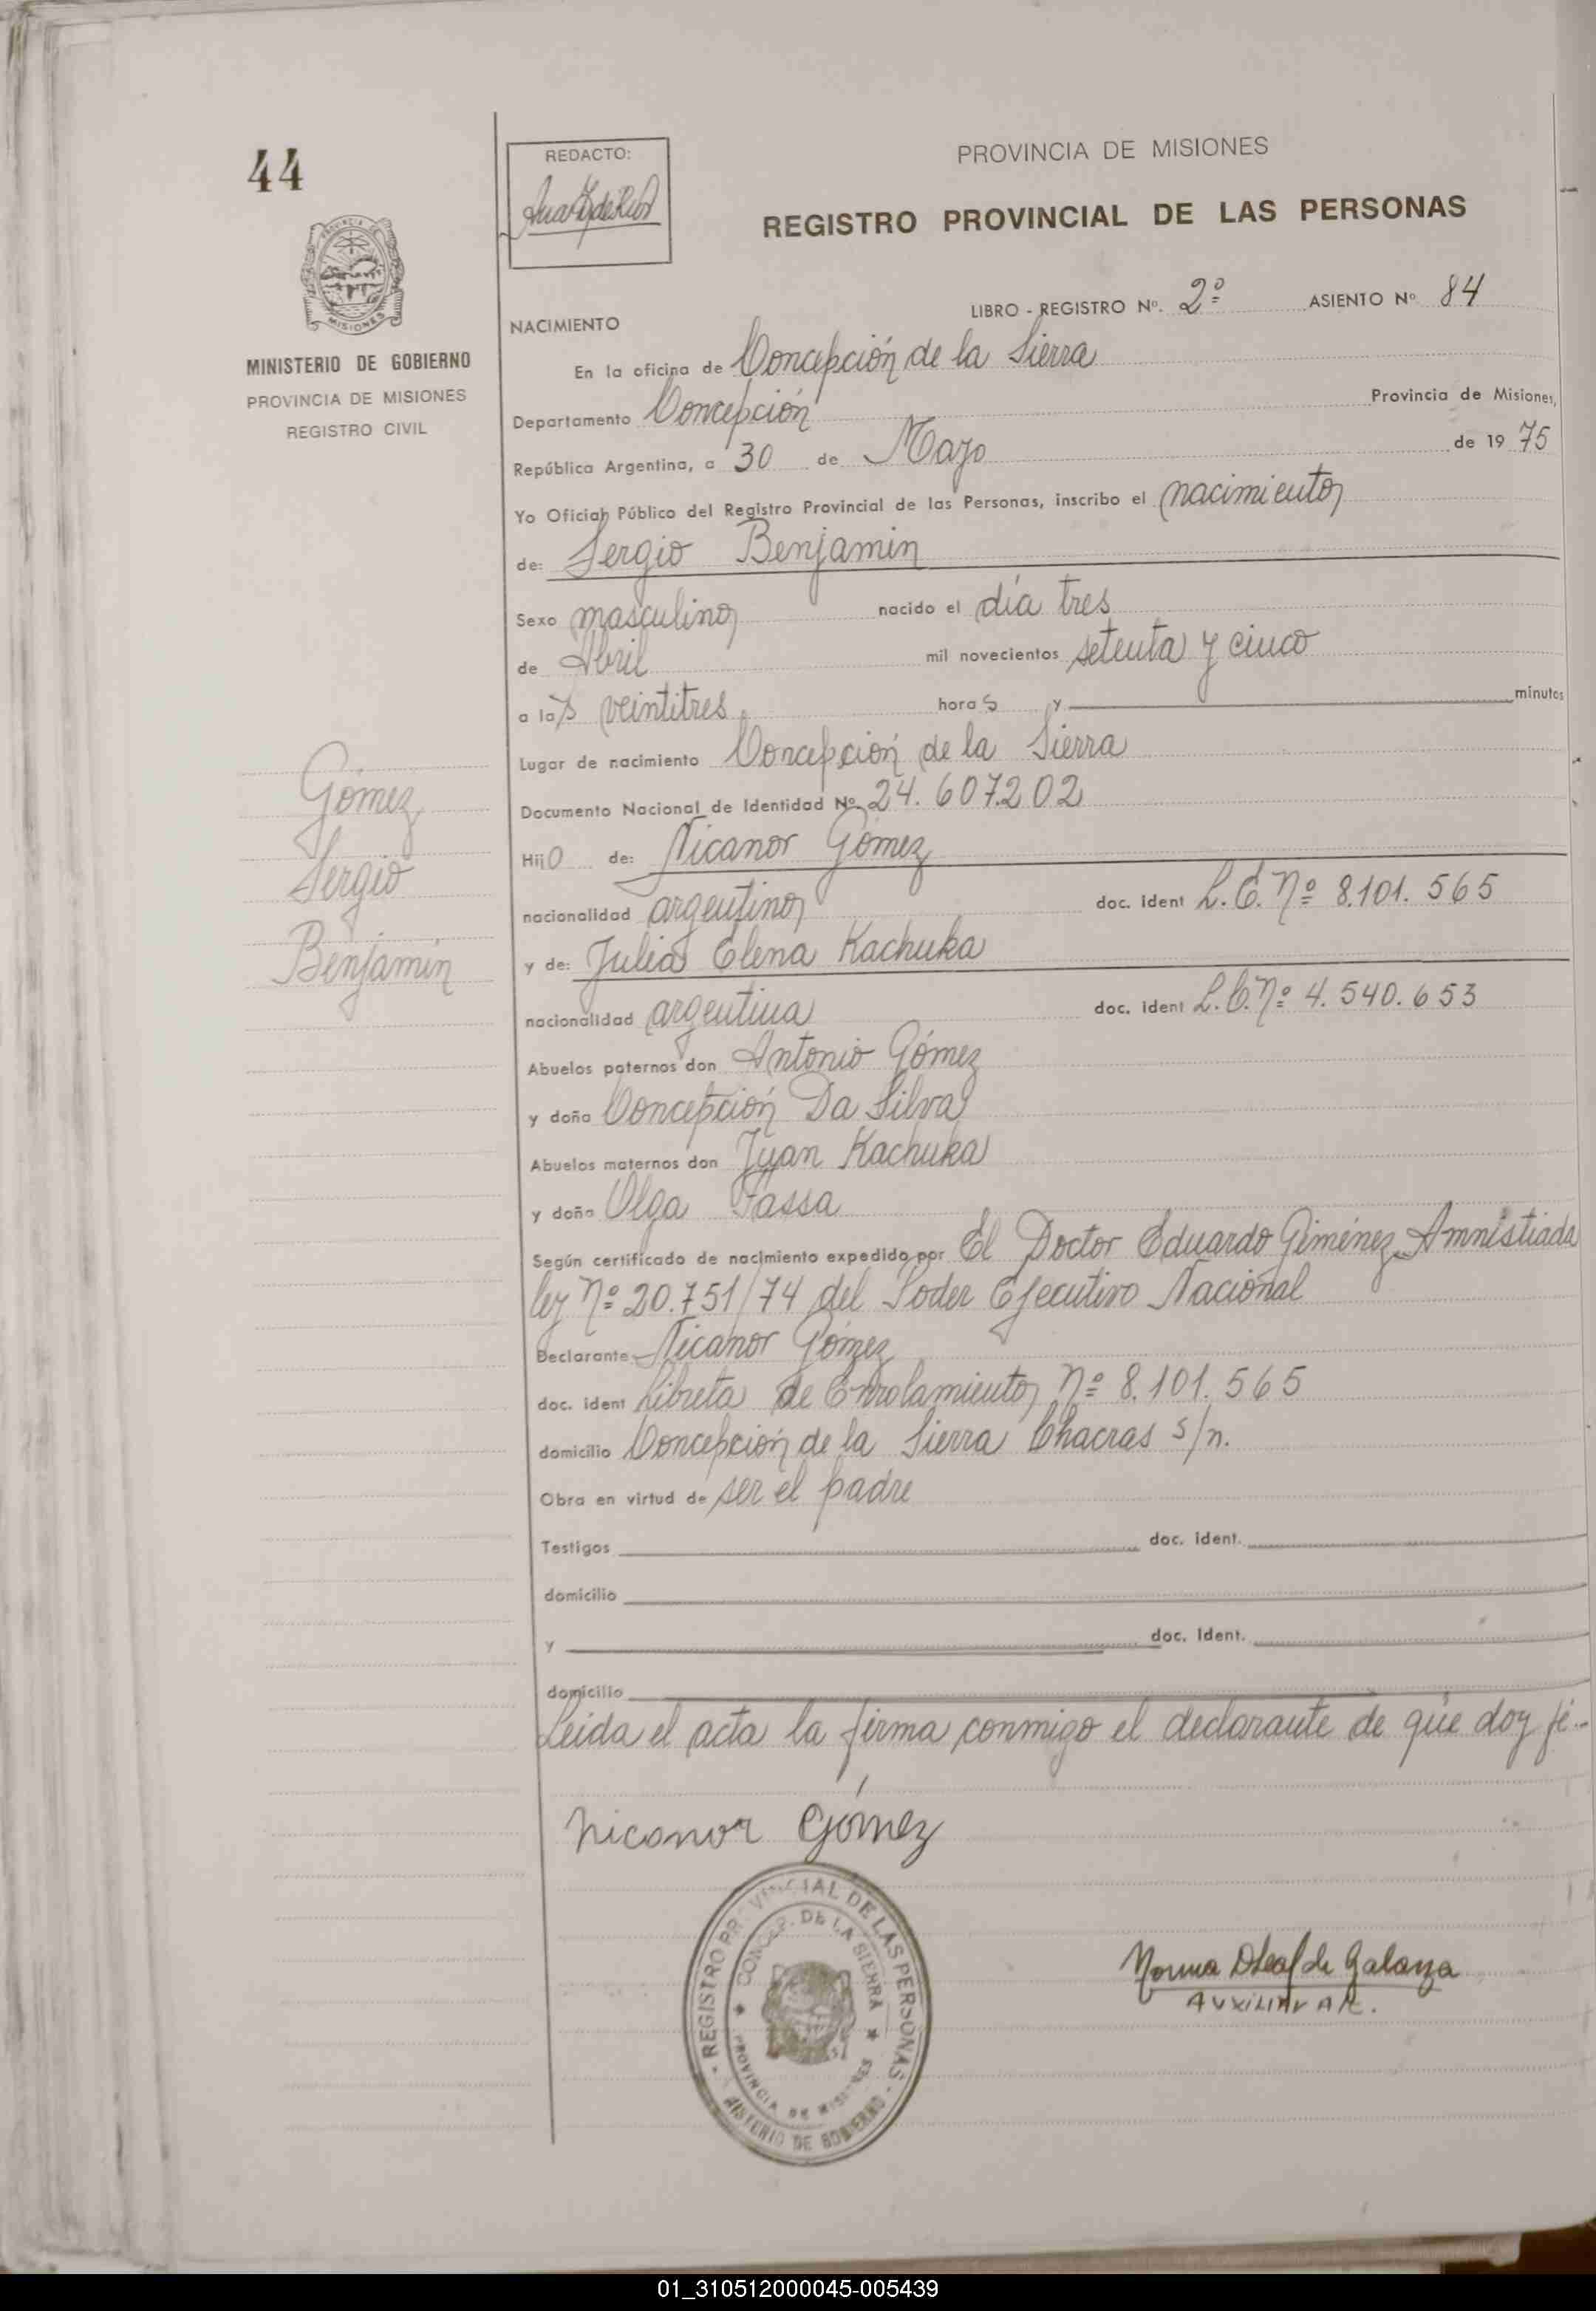 44
REDACTO:
PROVINCIA DE MISIONES
REGISTRO PROVINCIAL DE LAS PERSONAS
PROVINCIA DE
MISIONES
MINISTERIO DE GOBIERNO
PROVINCIA DE MISIONES
REGISTRO CIVIL
LIBRO - REGISTRO Nº. 2º ASIENTO Nº 84
NACIMIENTO
En la oficina de Concepción de la Sierra
Departamento Concepción Provincia de Misiones,
República Argentina, a 30 de Mayo de 19 75
Yo Oficial Público del Registro Provincial de las Personas, inscribo el nacimiento
de: Sergio Benjamin
Sexo masculino nacido el día tres
de Abril mil novecientos setenta y cinco
a las veintitres horas y minutos
Lugar de nacimiento Concepción de la Sierra
Documento Nacional de Identidad Nº 24.607.202
Hijo de: Nicanor Gómez
nacionalidad argentino doc. ident L.E. Nº 8.101.565
y de: Julia Elena Kachuka
nacionalidad argentina doc. ident L.C. Nº 4.540.653
Abuelos paternos don Antonio Gómez
y doña Concepción Da Silva
Abuelos maternos don Juan Kachuka
y doña Olga Fassa
Según certificado de nacimiento expedido por El Doctor Eduardo Giménez Amnistiada
ley Nº 20.751/74 del Poder Ejecutivo Nacional
Declarante Nicanor Gómez
doc. ident Libreta de Enrolamiento Nº 8.101.565
domicilio Concepción de la Sierra Chacras s/n.
Obra en virtud de ser el padre
Testigos doc. ident.
domicilio
y doc. Ident.
domicilio
Leida el acta la firma conmigo el declarante de que doy fé.-
Gómez
Sergio
Benjamin
Nicanor Gómez
REGISTRO PROVINCIAL DE LAS PERSONAS
CONCEP. DE LA SIERRA
PROVINCIA DE MISIONES
MINISTERIO DE GOBIERNO
Norma de Galarza
AUXILIAR
01_310512000045-005439